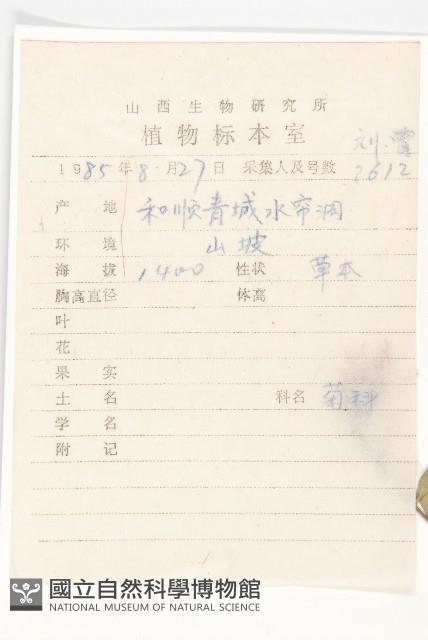 山西生物研究所
植物标本室
刘
1985年8月27日 采集人及号数 2612
产 地 和顺青城水帘洞
环 境 山坡
海 拔 1400 性状 草本
胸高直径 体高
叶
花
果 实
土 名 科名 菊科
学 名
附 记
國立自然科學博物館
NATIONAL MUSEUM OF NATURAL SCIENCE